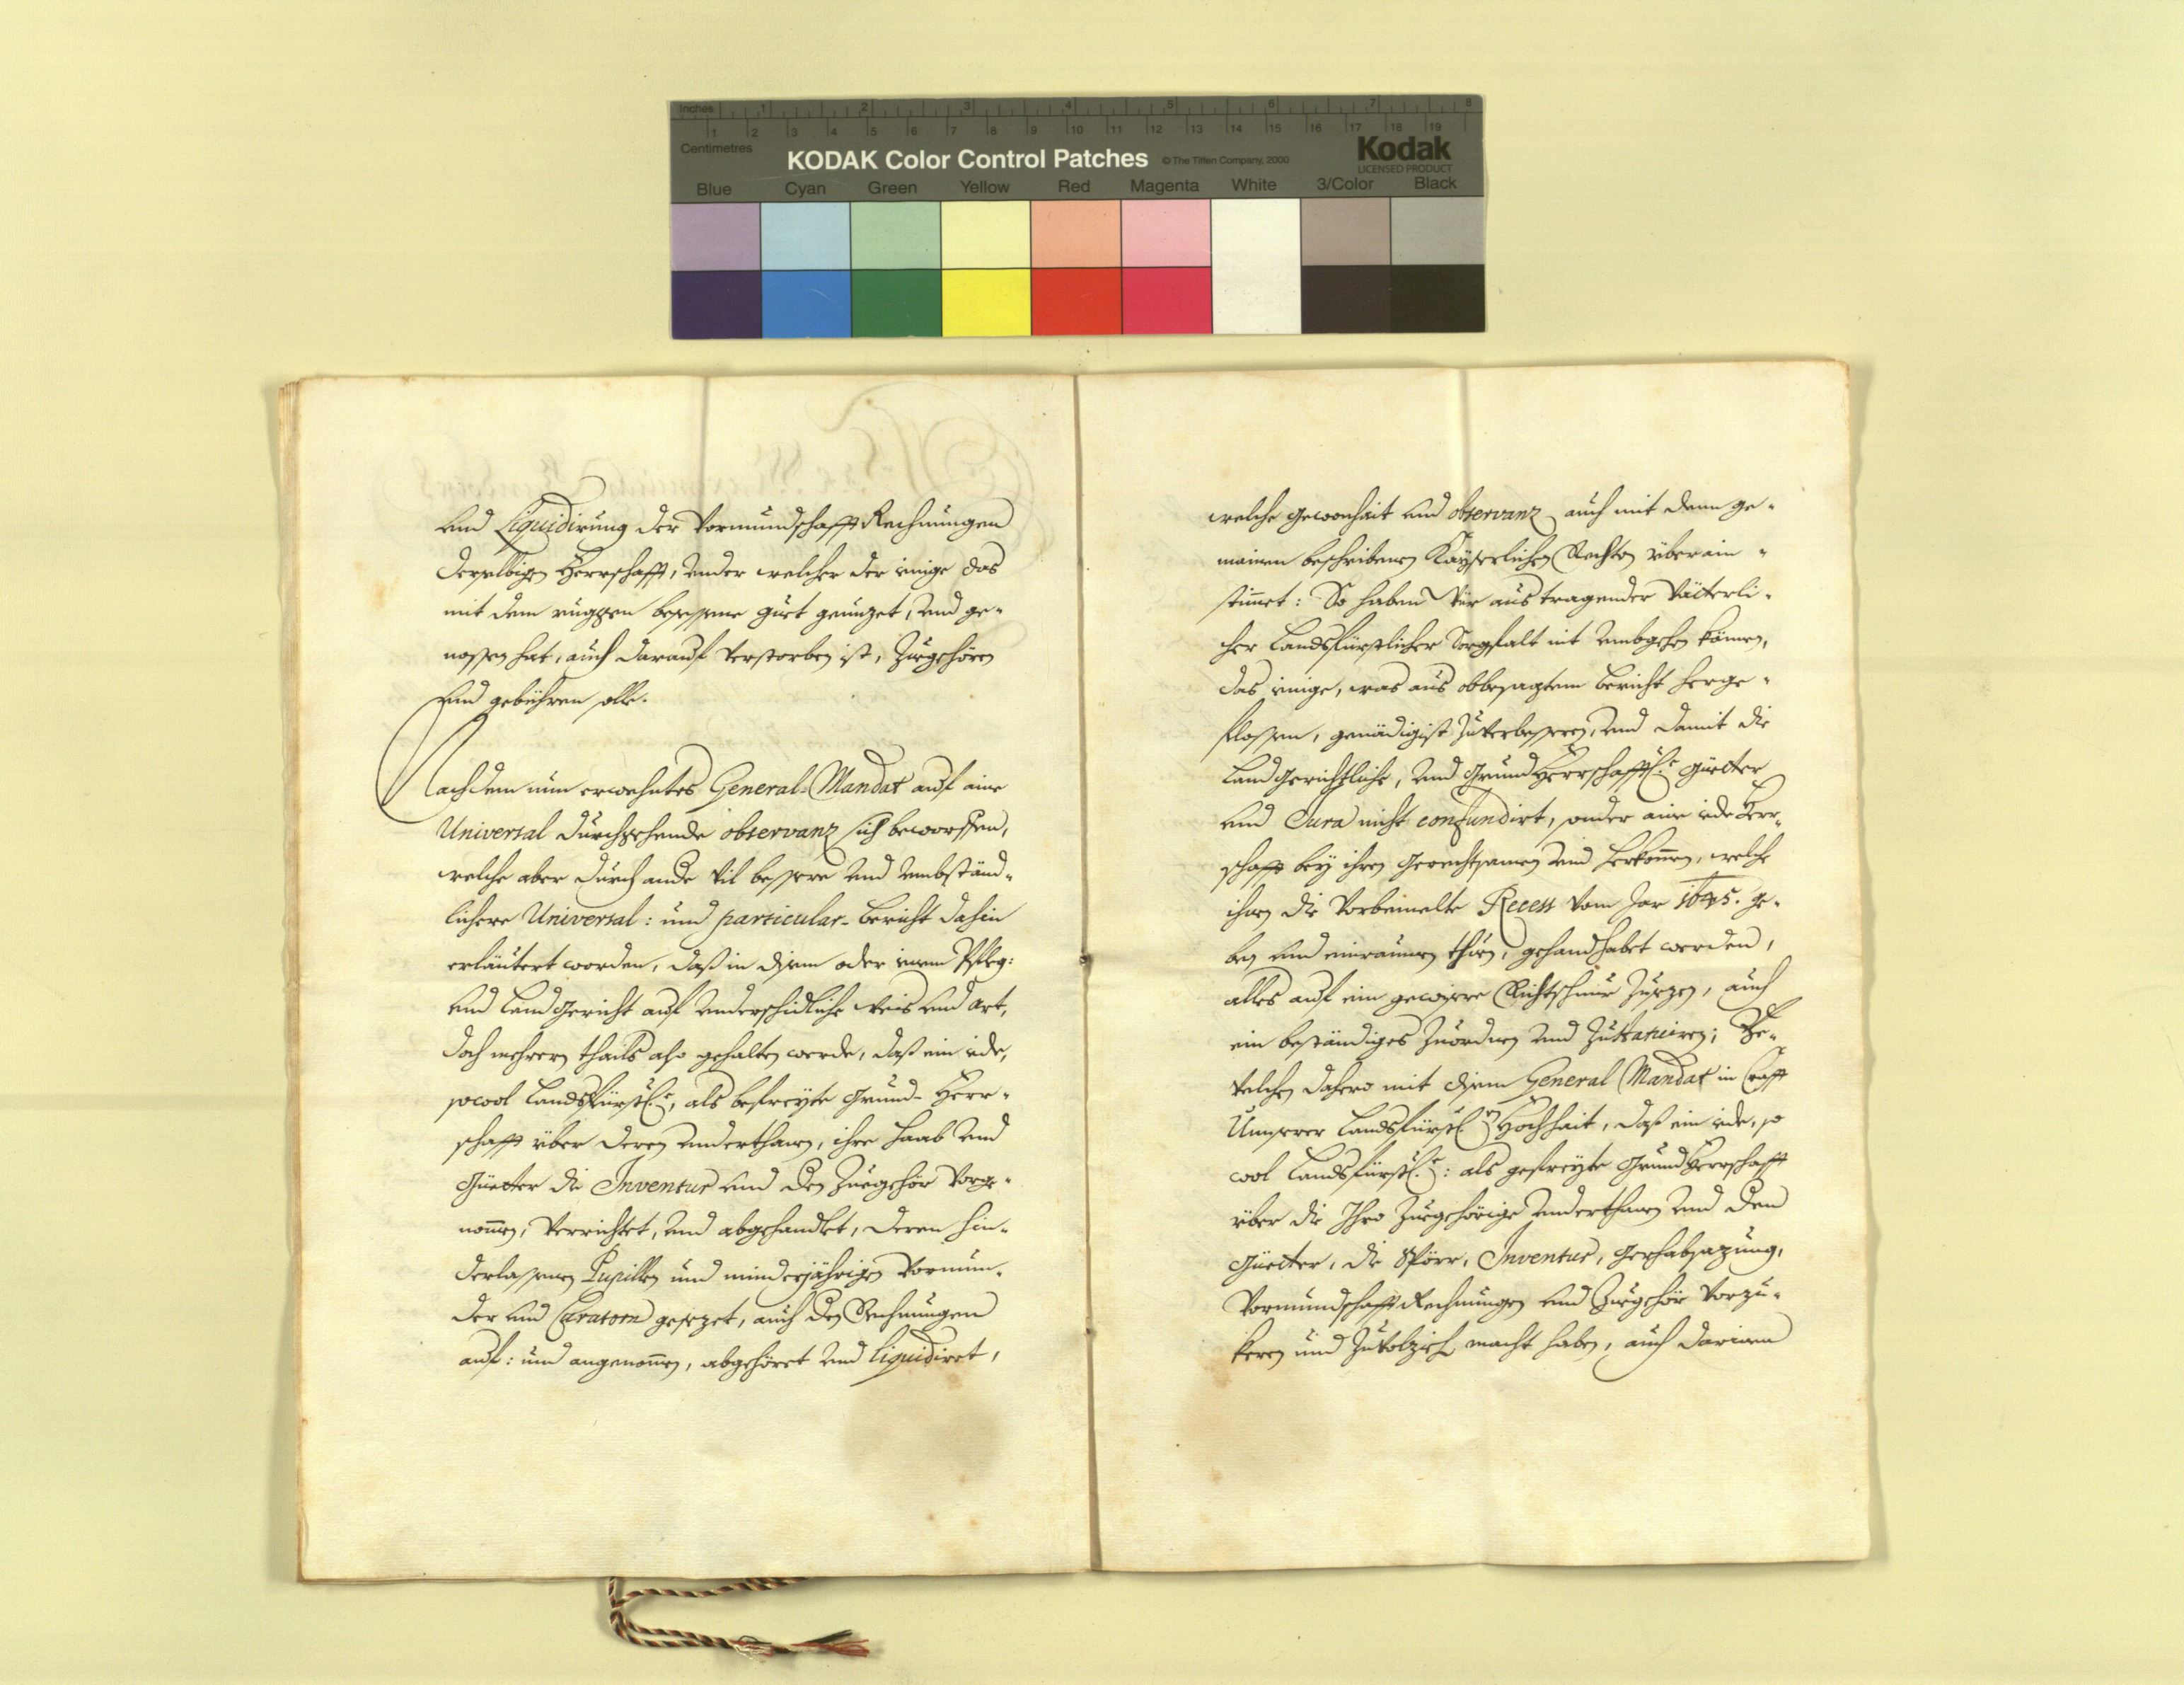 Inches 1 2 3 4 5 6 7 8
1 2 3 4 5 6 7 8 9 10 11 12 13 14 15 16 17 18 19
Centimetres
KODAK Color Control Patches ©The Tiffen Company, 2000
Kodak
LICENSED PRODUCT
Blue Cyan Green Yellow Red Magenta White 3/Color Black
und Liquidirung der Vormundschafft Rechnungen
derselbigen Herrschafft, under welcher der ienige das
mit dem ruggen besessene guet genuzet, und ge-
nossen hat, auch darauf verstorben ist, Zuegehören
und gebühren solle.
Nachdem nun erwehntes General-Mandat auf eine
Universal durchgehende observanz sich beworffen,
welche aber durch ande vil bessere und umbständ-
lichere Universal: und particular-bericht dahin
erläutert worden, daß in disem oder ienem Pfleg:
und Landgericht auf underschidliche weis und art,
doch mehrern thails also gehalten werde, daß ein iede,
sowol Landsfürstl:e, als befreyte Grund-Herr-
schafft über deren underthanen, ihre Haab und
Güetter die Inventur und den Zuegehör vorge-
nommen, verrichtet, und abgehandlet, deren hin-
derlassenen Pupillen und minderjährigen Vormün-
der und Curatorn gesezet, auch den Rechnungen
auf: und angenommen, abgehöret und liquidiret,
welche gewonhait und observanz auch mit denn ge-
mainen beschribenen Kayserlichen Rechten überain-
stimmet: So haben Wir aus tragender Vätterli-
cher Landsfürstlicher Sorgfalt nit umbgehen können,
das ienige, was aus obbesagtem bericht herge-
flossen, genädigist Zuverbesseren, und damit die
Landgerichtliche, und GrundHerrschafftl:e Güetter
und Jura nicht confundirt, sonder eine iede Herr-
schafft bey ihren Gerechtsamen und herkommen, welche
ihnen die vorbemelte Recess vom Jar 1645. ge-
ben und einraumen thuen, gehandhabet werden,
alles auf ein gewissere Richtschnur Zusezen, auch
ein beständiges Zuordnen und Zustatuiren; Be-
velchen dahero mit disem General Mandat in Crafft
Unnserer Landsfürstl:en Hochhait, daß ein iede, so
wol Landsfürstl:e: als gefreyte GrundHerrschafft
über die Ihro Zuegehörige underthanen und den
Güetter, die Spörr, Inventur, Gerhabsazung,
Vormundschafft Rechnungen und Zuegehör vorzu-
keren und Zuvolziech macht haben, auch darinen